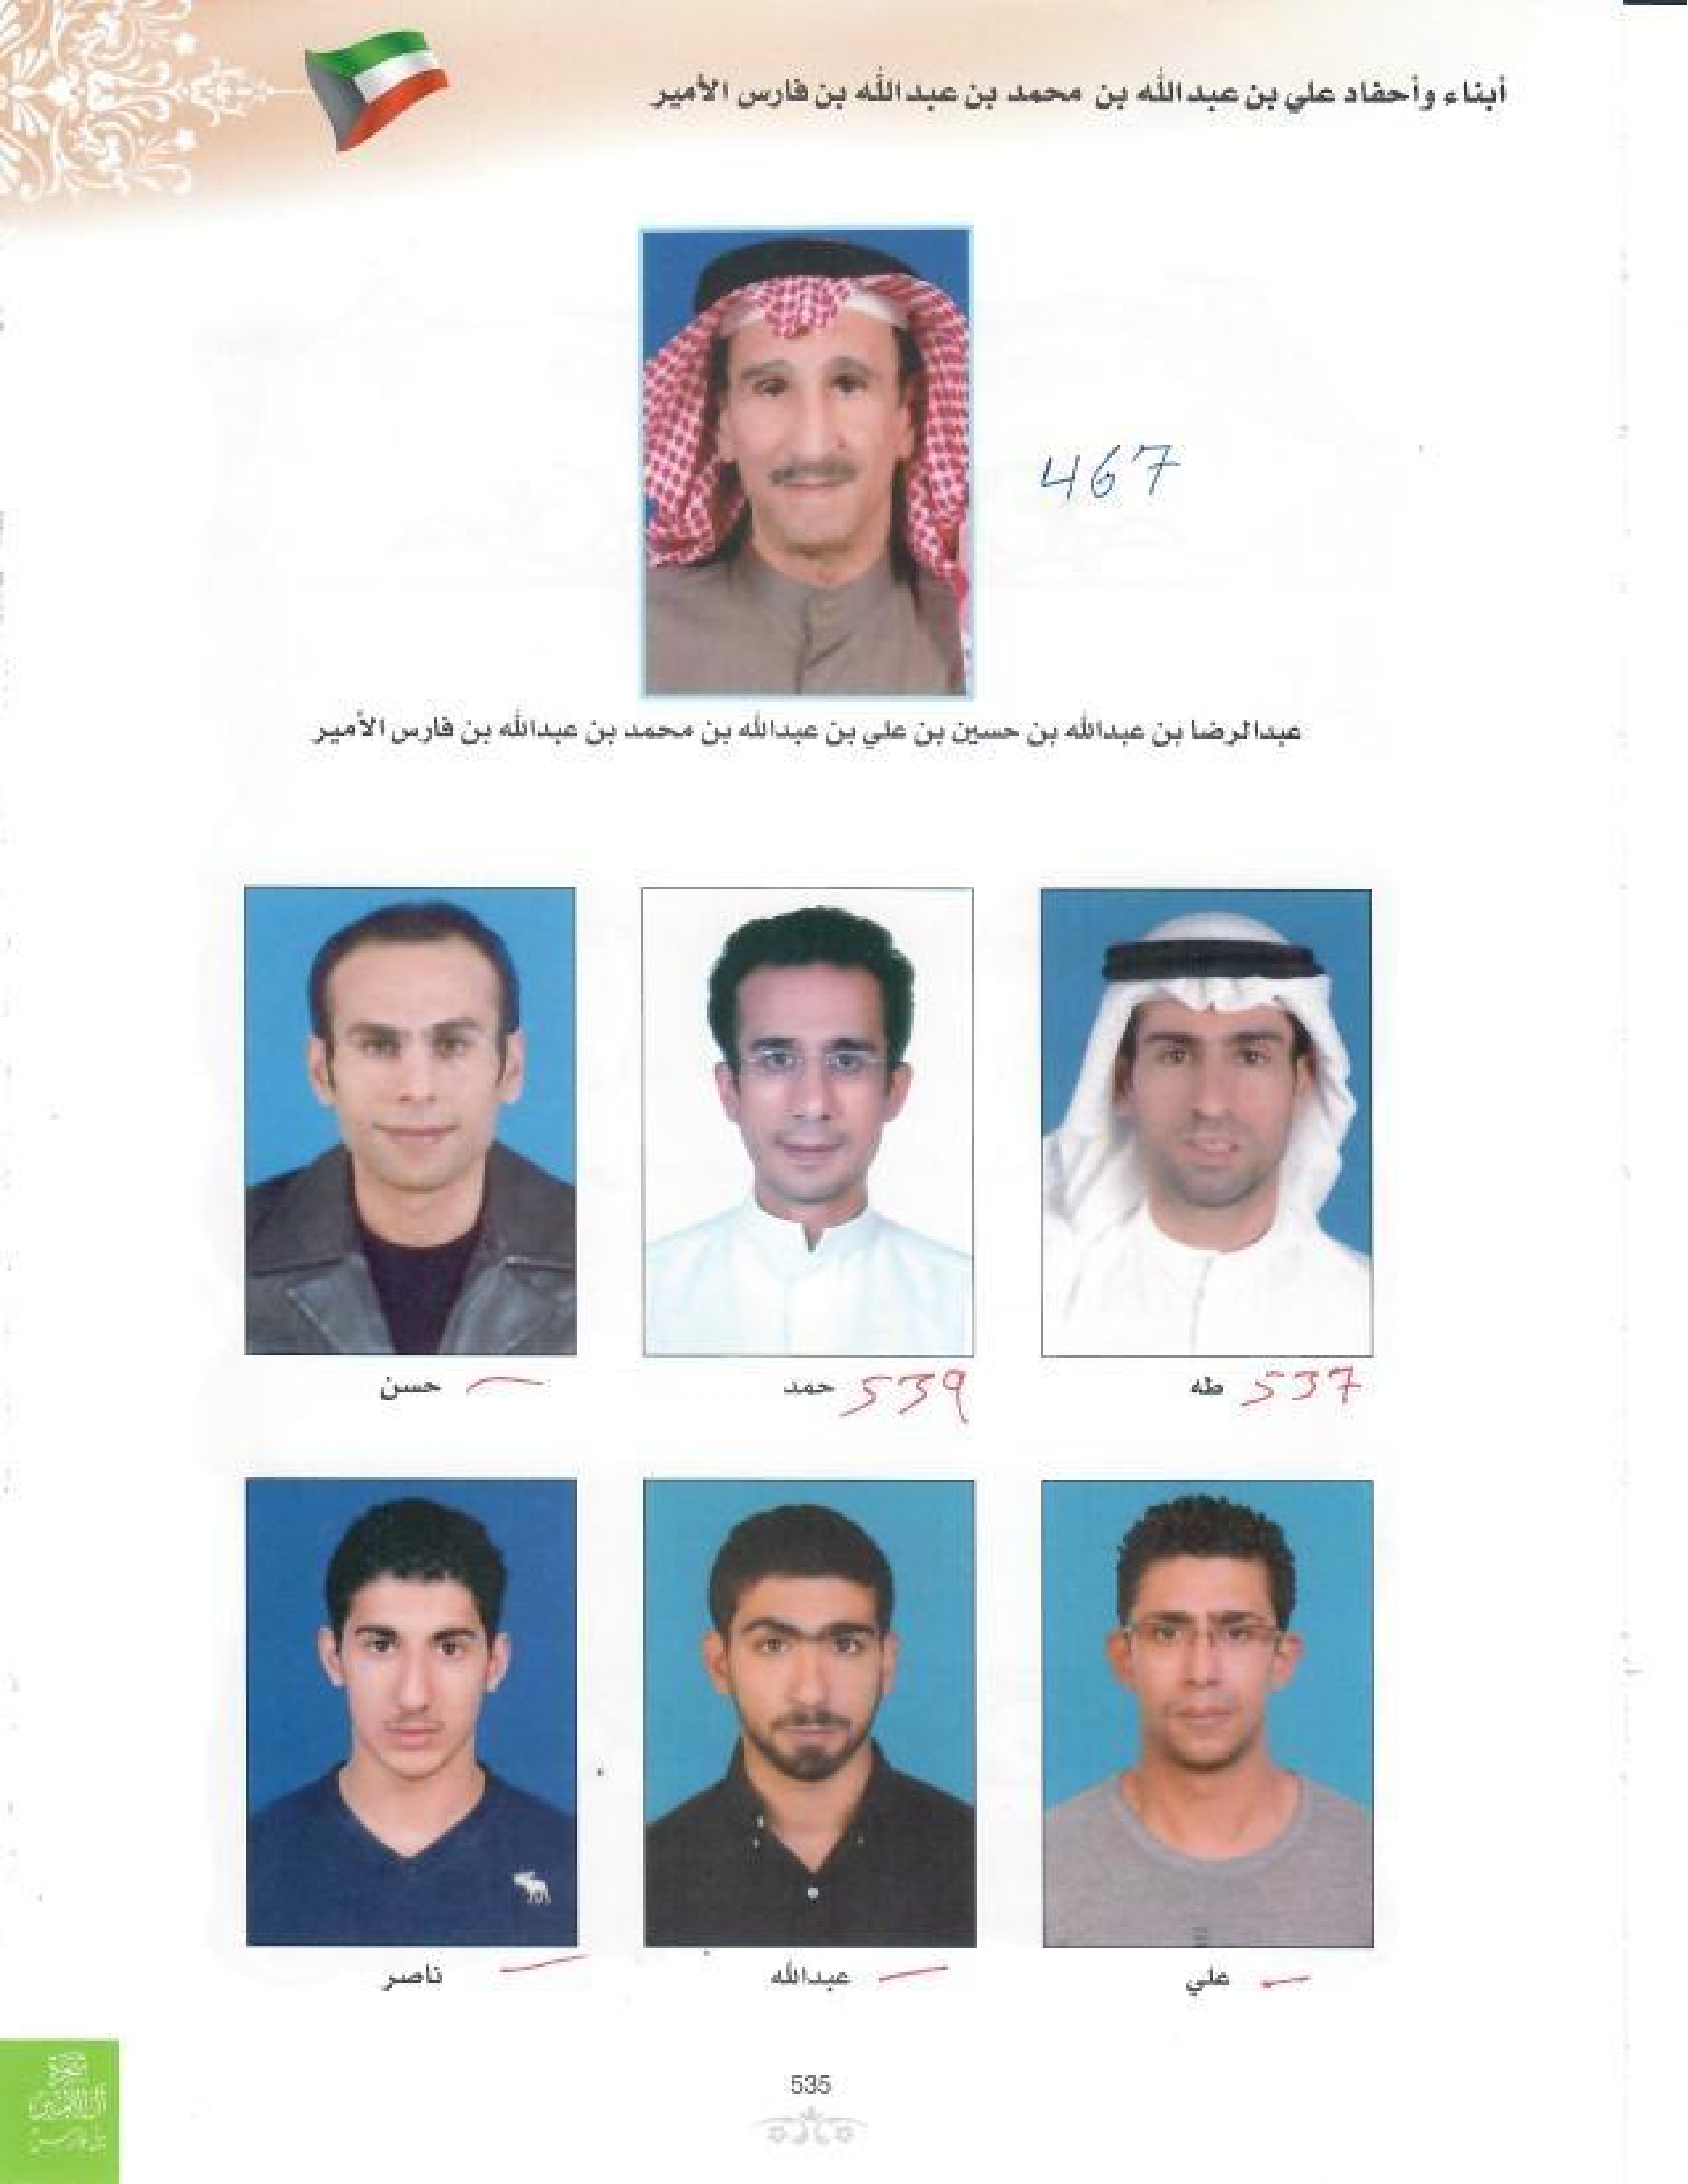 أبناء وأحفاد علي بن عبدالله بن محمد بن عبدالله بن فارس الأمير
467
عبدالرضا بن عبدالله بن حسين بن علي بن عبدالله بن محمد بن عبدالله بن فارس الأمير
537 طه
539 حمد
حسن
علي
عبدالله
ناصر
شجرة
535